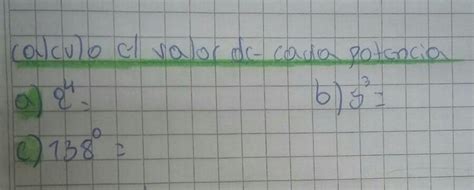 calculo el valor de cada potencia
a) 2⁴= b) 5³=
c) 138⁰ =